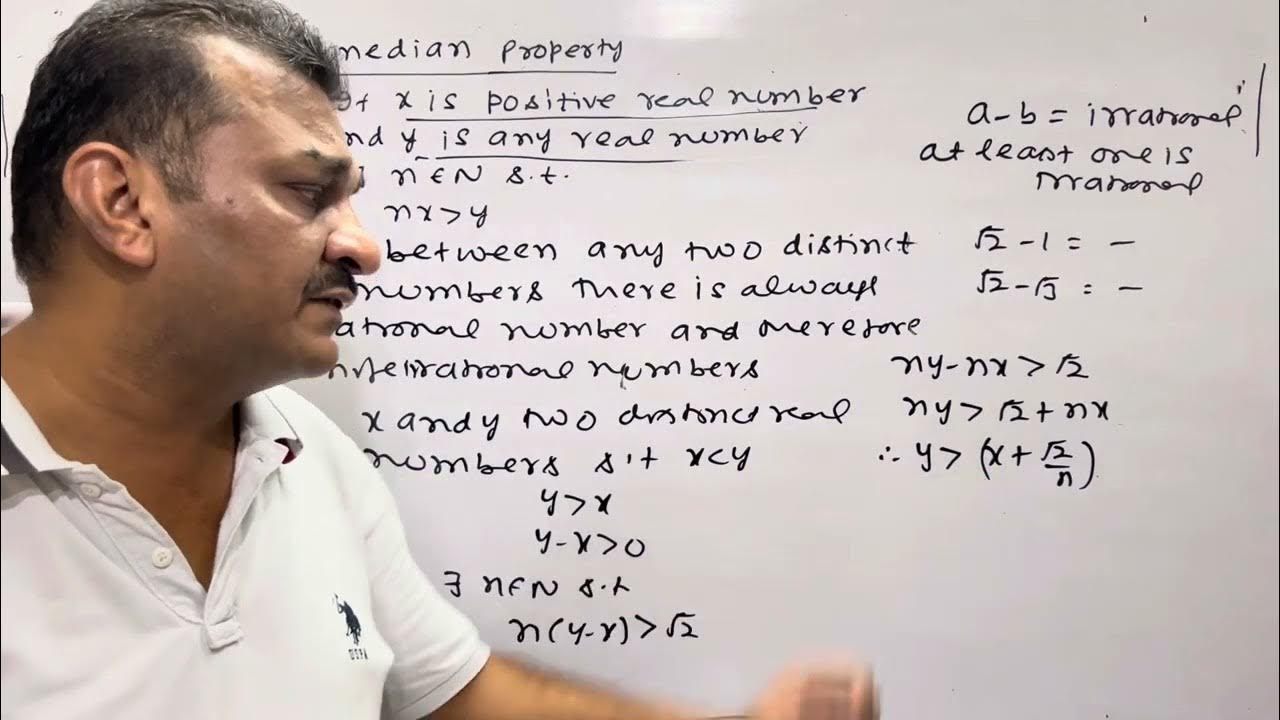 median property
If x is positive real number
and y is any real number
∃ n ∈ N s.t.
nx > y
between any two distinct
numbers there is always
ational number and therefore
infinite irrational numbers
x and y two distinct real
numbers s.t x<y
y > x
y-x>0
∃ n∈N s.t
n(y-x) > √2
a-b = irrational
at least one is
irrational
√2 - 1 = -
√2 - √3 = -
ny-nx > √2
ny > √2 + nx
∴ y > (x + √2/n)
USPA